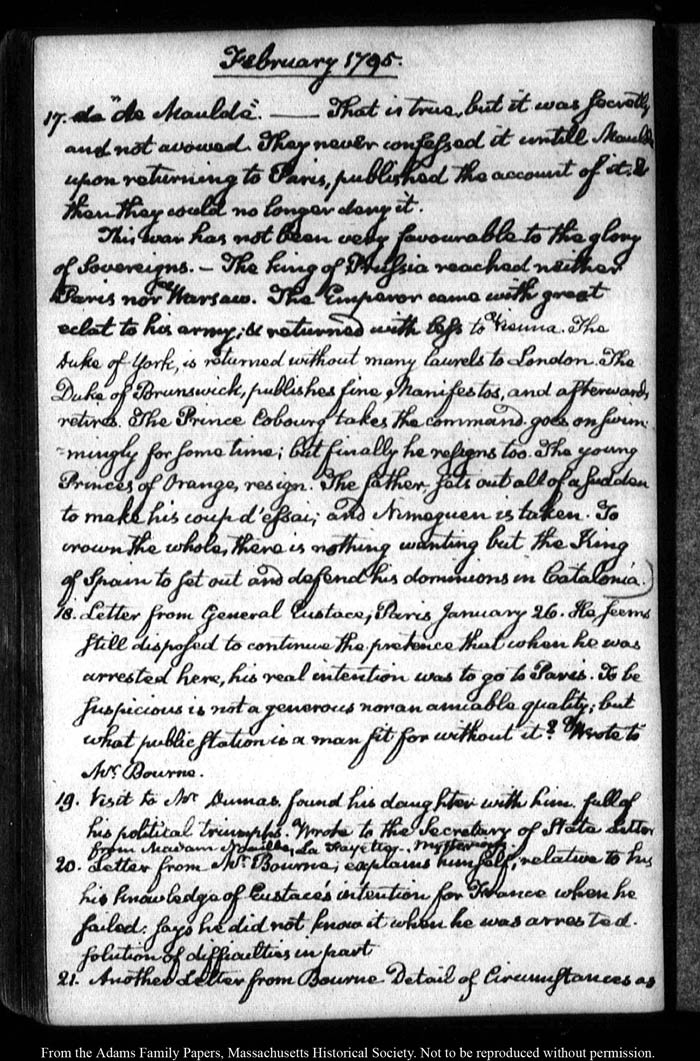 February 1795.
17. de "de Maulde". — That is true, but it was secretly
and not avowed. They never confessed it untill Maulde
upon returning to Paris, published the account of it; &
then they could no longer deny it.
This war has not been very favourable to the glory
of Sovereigns. — The king of Prussia reached neither
Paris nor Warsaw. The Emperor came with great
eclat to his army; & returned with less to Vienna. The
Duke of York, is returned without many laurels to London. The
Duke of Brunswick, publishes fine Manifestos, and afterwards
retires. The Prince Cobourg takes the command goes on swim-
-mingly for some time; but finally he resigns too. The young
Princes of Orange, resign. The father sets out all of a sudden
to make his coup d'essai; and Nimeguen is taken. To
crown the whole, there is nothing wanting but the King
of Spain to set out and defend his dominions in Catalonia.)
18. Letter from General Eustace, Paris January 26. He seems
still disposed to continue the pretence that when he was
arrested here, his real intention was to go to Paris. To be
suspicious is not a generous nor an amiable quality; but
what public station is a man fit for without it? Wrote to
Mr. Bourne.
19. Visit to Mr. Dumas, found his daughter with him. full of
his political triumphs. Wrote to the Secretary of State Letter
from Madam Noailles, La Fayette. Mysterious.
20. Letter from Mr. Bourne; explains himself, relative to his
his knowledge of Eustace's intention for France when he
sailed. says he did not know it when he was arrested.
solution of difficulties in part
21. Another Letter from Bourne. Detail of Circumstances as
From the Adams Family Papers, Massachusetts Historical Society. Not to be reproduced without permission.